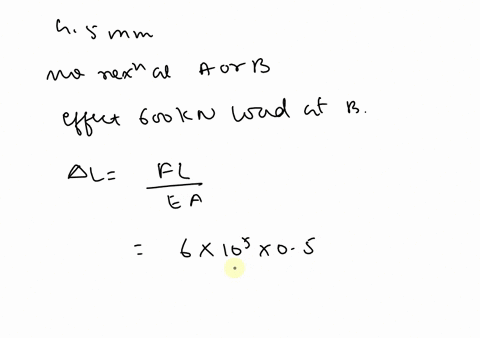 4.5 mm
no rexⁿ at A or B
effect 600 kN load at B.
ΔL = FL
EA
= 6 × 10⁵ × 0.5